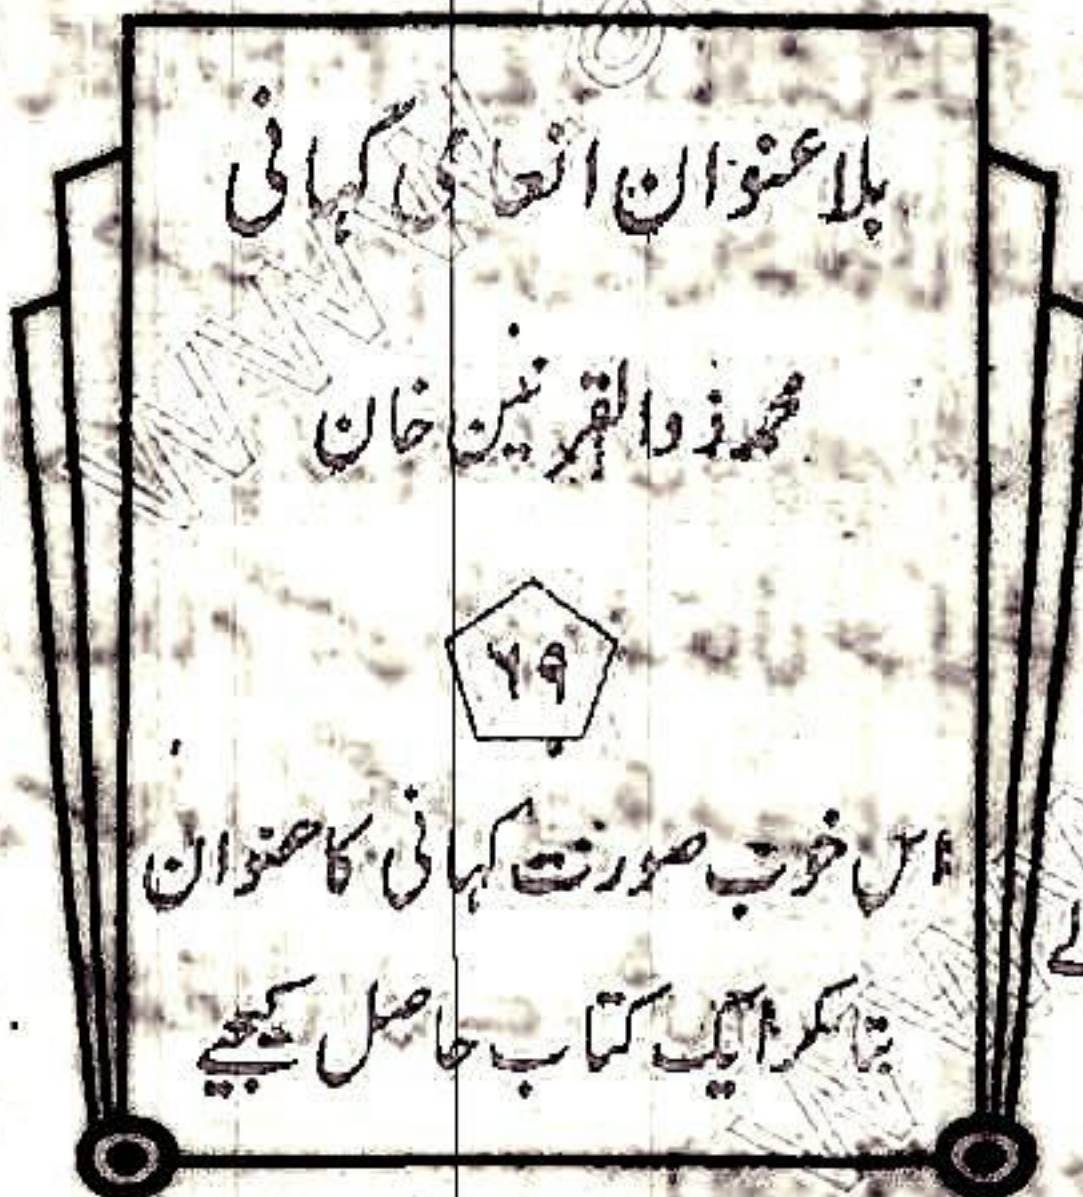 بلا عنوان انعامی کہانی
محمد ذوالقرنین خان
۶۹
اس خوب صورت کہانی کا عنوان
بتا کر ایک کتاب حاصل کیجیے
WWW